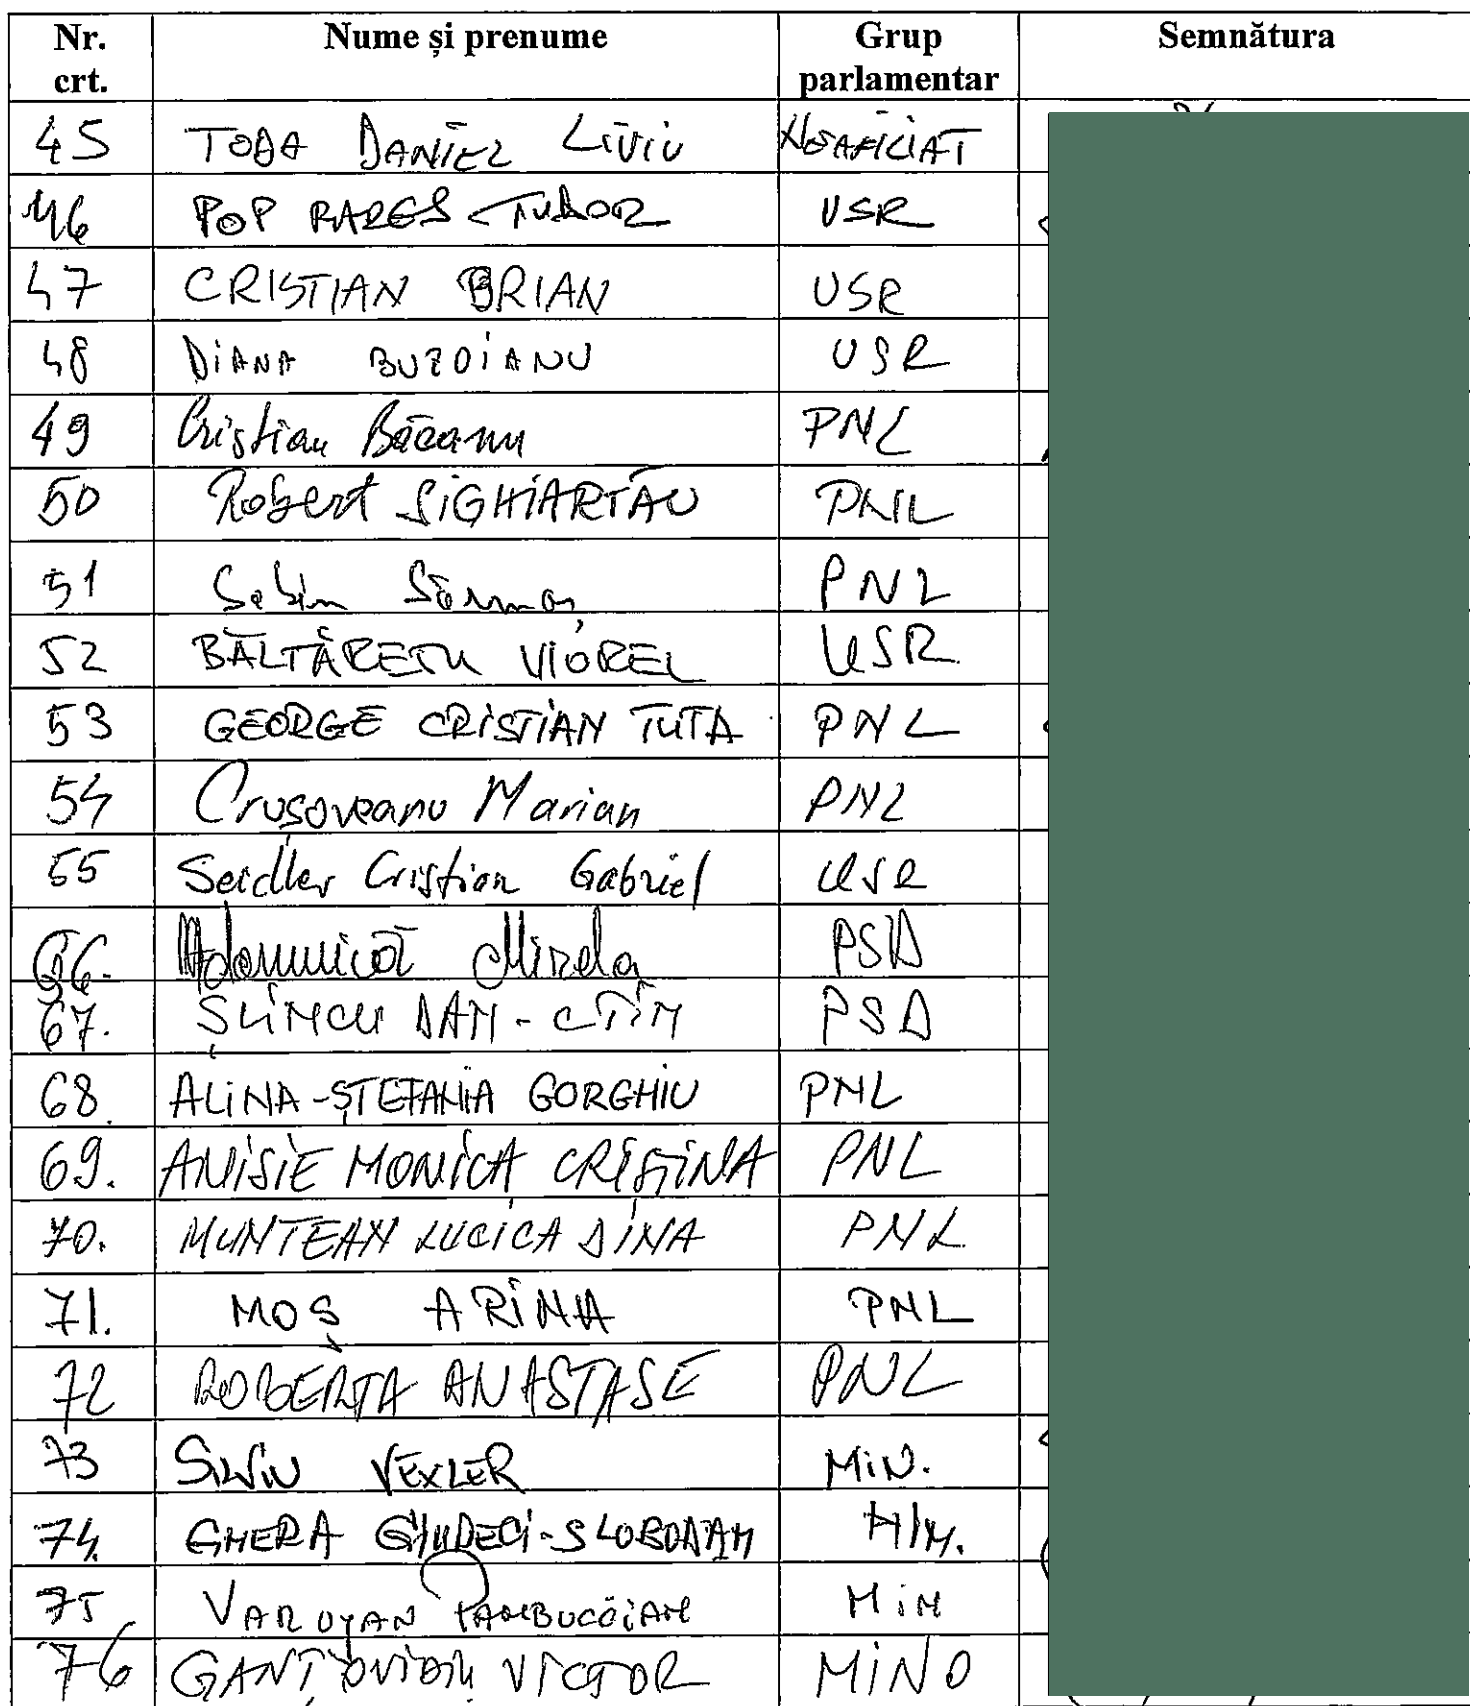 Nr. crt. Nume și prenume Grup parlamentar Semnătura
45 TODA DANIEL LIVIU NEAFILIAT
46 POP RARES-TUDOR USR
47 CRISTIAN BRIAN USR
48 DIANA BUZOIANU USR
49 Cristian Băcanu PNL
50 Robert SIGHIARTĂU PNL
51 Sabin Sărmaș PNL
52 BĂLTĂREȚU VIOREL USR
53 GEORGE CRISTIAN TUTA PNL
54 Crușoveanu Marian PNL
55 Seidler Cristian Gabriel USR
66. Adomnicăi Mirela PSD
67. ȘLINCU DAN-CTIN PSD
68. ALINA-ȘTEFANIA GORGHIU PNL
69. ANISIE MONICA CRISTINA PNL
70. MUNTEAN LUCICA DINA PNL
71. MOȘ ARINA PNL
72 ROBERTA ANASTASE PNL
73 SILVIU VEXLER MIN.
74. GHERA GIUDECI-SLOBODAN MIN.
75 VARUJAN PAMBUCCIAN MIN
76 GANȚ OVIDIU VICTOR MINO